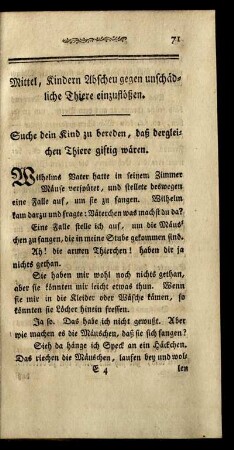 71
Mittel, Kindern Abscheu gegen unschäd-
liche Thiere einzuflößen.
Suche dein Kind zu bereden, daß derglei-
chen Thiere giftig wären.
Wilhelms Vater hatte in seinem Zimmer
Mäuse verspüret, und stellete deswegen
eine Falle auf, um sie zu fangen. Wilhelm
kam darzu und fragte: Väterchen was machst du da?
Eine Falle stelle ich auf, um die Mäus-
chen zu fangen, die in meine Stube gekommen sind.
Ah! die armen Thierchen! haben dir ja
nichts gethan.
Sie haben mir wohl noch nichts gethan,
aber sie könnten mir leicht etwas thun. Wenn
sie mir in die Kleider oder Wäsche kämen, so
könnten sie Löcher hinein fressen.
Ja so. Das habe ich nicht gewußt. Aber
wie machen es die Mäuschen, daß sie sich fangen?
Sieh da hänge ich Speck an ein Häckchen.
Das riechen die Mäuschen, laufen bey und wol-
E 4
len